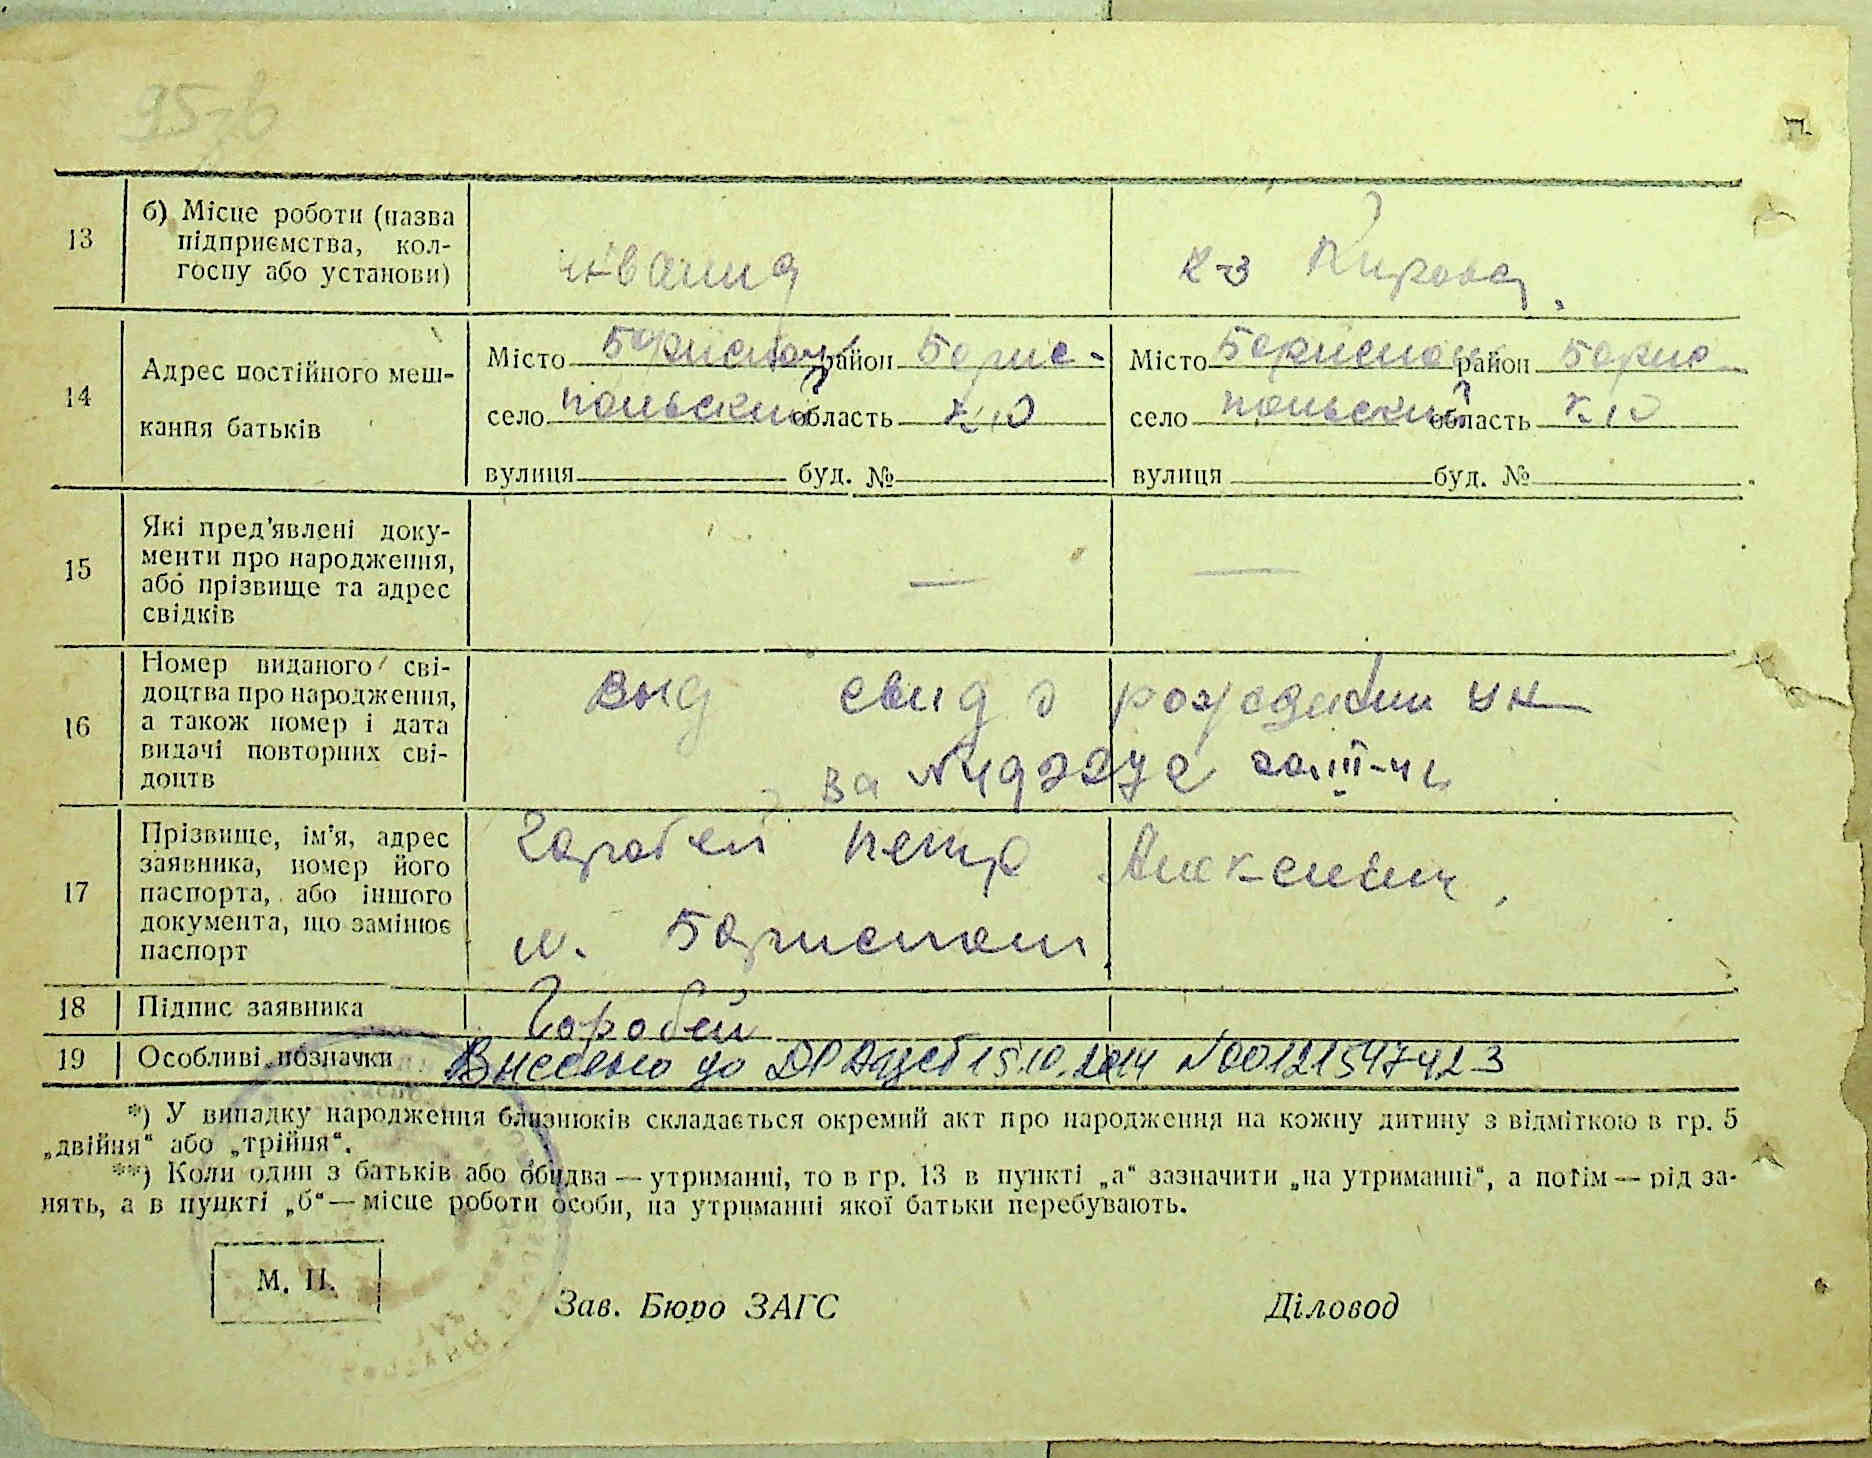 13
б) Місце роботи (назва
підприємства, кол-
госпу або установи)
инвалид
к-з Кирова.
14
Адрес постійного меш-
кання батьків
Місто Борисполь район Борис-
село польский область К.
вулиця буд. №
Місто Борисполь район Борис
село польский область К.
вулиця буд. №
15
Які пред'явлені доку-
менти про народження,
або прізвище та адрес
свідків
—
—
16
Номер виданого сві-
доцтва про народження,
а також номер і дата
видачі повторних сві-
доцтв
выд свид о рождении
за №
17
Прізвище, ім'я, адрес
заявника, номер його
паспорта, або іншого
документа, що замінює
паспорт
Горобей Петр Алексеевич,
м. Борисполь
18
Підпис заявника
Горобей
19
Особливі позначки
Внесено до ДРАЦСГ 15.10.2014 №00121547423
*) У випадку народження близнюків складається окремий акт про народження на кожну дитину з відміткою в гр. 5
„двійня“ або „трійня“.
**) Коли один з батьків або обидва — утриманні, то в гр. 13 в пункті „а“ зазначити „на утриманні“, а потім — рід за-
нять, а в пункті „б“ — місце роботи особи, на утриманні якої батьки перебувають.
М. П.
Зав. Бюро ЗАГС
Діловод